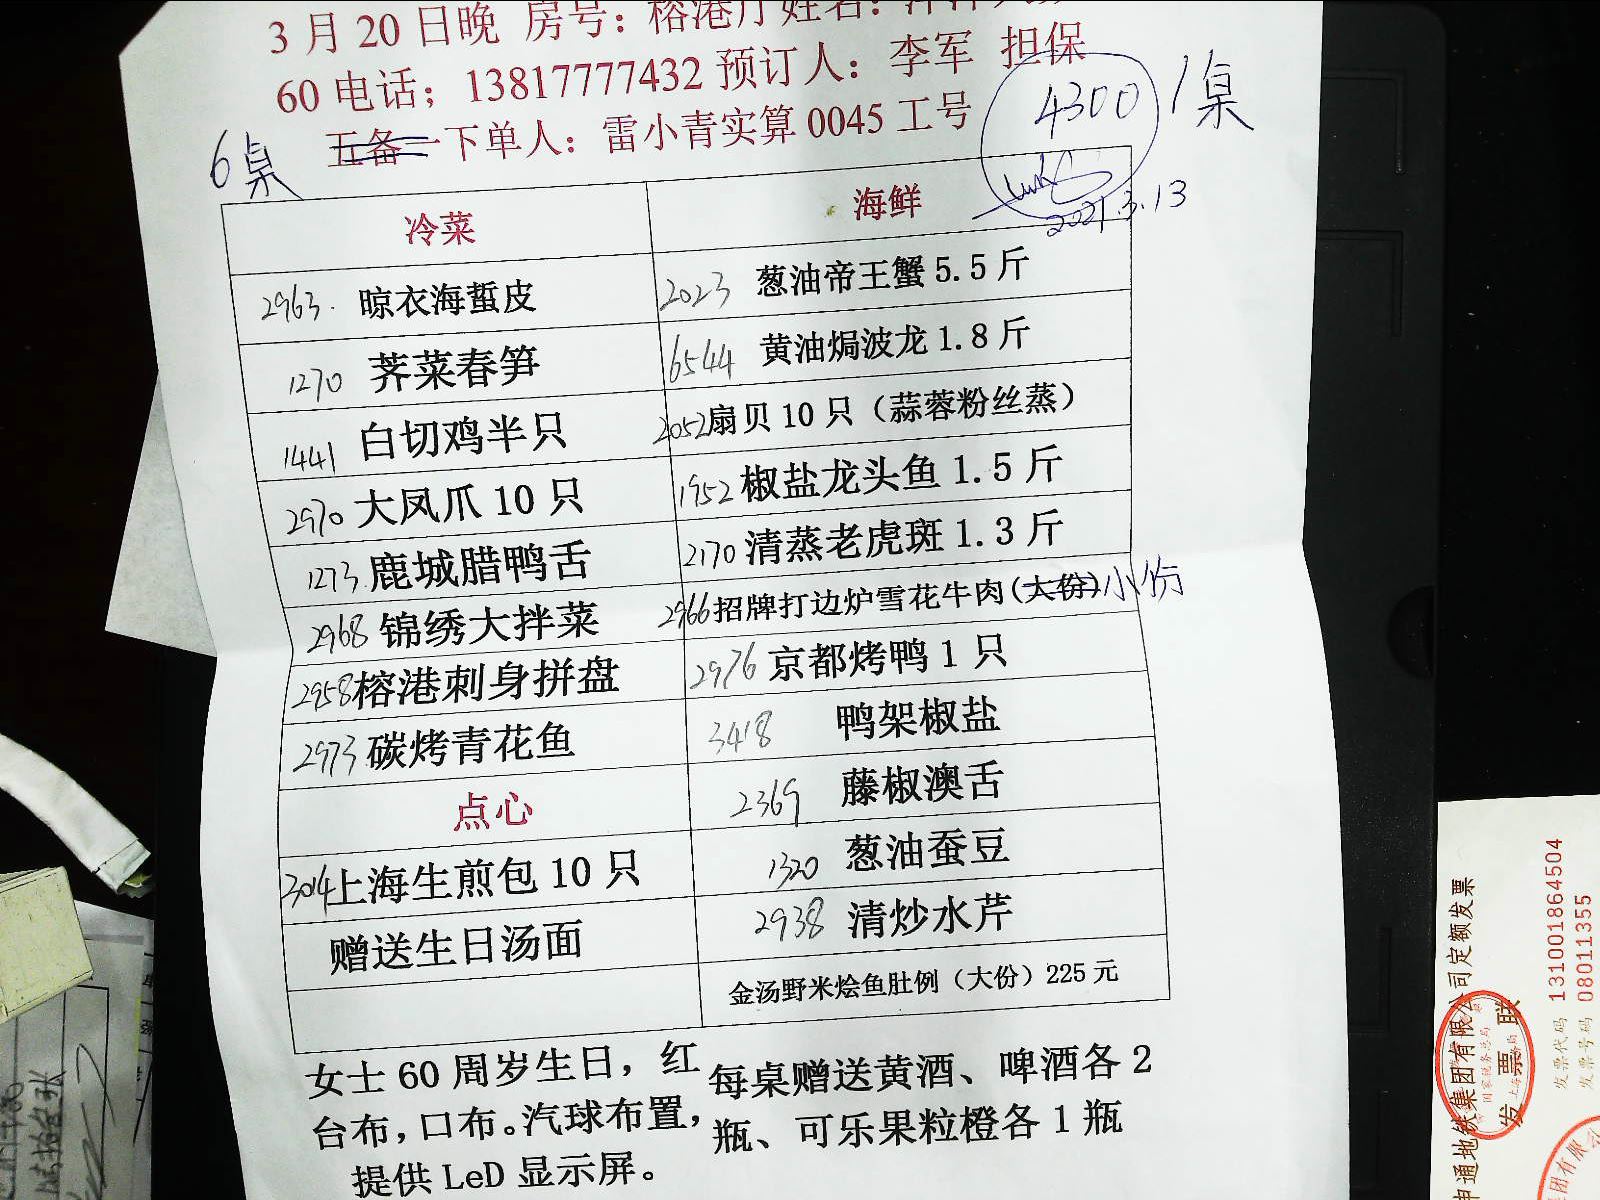 3月20日晚 房号：榕港厅姓名：
60电话；13817777432预订人：李军 担保
五备一下单人：雷小青实算0045工号
6桌
4300/桌
2021.3.13
冷菜 海鲜
2963 晾衣海蜇皮 2023 葱油帝王蟹5.5斤
1270 荠菜春笋 6544 黄油焗波龙1.8斤
1441 白切鸡半只 2052 扇贝10只（蒜蓉粉丝蒸）
2970 大凤爪10只 1952 椒盐龙头鱼1.5斤
1273 鹿城腊鸭舌 2170 清蒸老虎斑1.3斤
2968 锦绣大拌菜 2966 招牌打边炉雪花牛肉(大份)小份
2958 榕港刺身拼盘 2976 京都烤鸭1只
2973 碳烤青花鱼 3418 鸭架椒盐
点心 2369 藤椒澳舌
3014 上海生煎包10只 1320 葱油蚕豆
赠送生日汤面 2938 清炒水芹
金汤野米烩鱼肚例（大份）225元
女士60周岁生日，红
台布，口布。汽球布置，
提供LeD显示屏。
每桌赠送黄酒、啤酒各2
瓶、可乐果粒橙各1瓶
申通地铁集团有限公司定额发票
发票联
发票代码 131001864504
发票号码 08011355